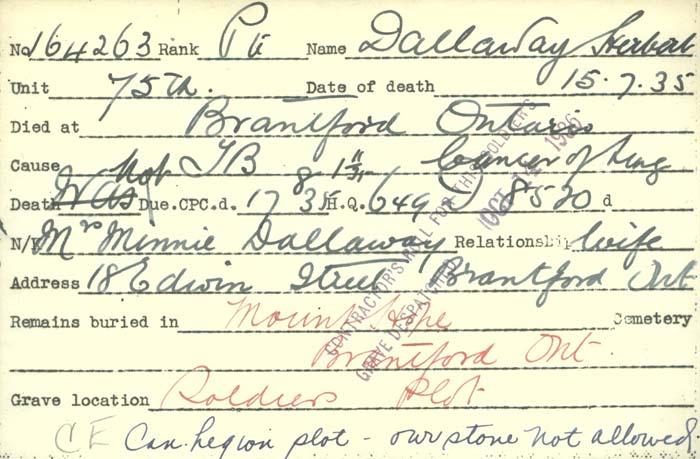 No 164263 Rank Pte Name Dallaway Herbert
Unit 75th. Date of death 15.7.35
Died at Brantford Ontario
Cause TB Cancer of lung
Death Was Not Due. CPC.d. 17 8 35 H.Q. 649 D 8520 d
N/K Mrs Minnie Dallaway Relationship Wife
Address 18 Edwin Street Brantford Ont
Remains buried in Mount Hope Cemetery
Brantford Ont.
Grave location Soldiers Plot
CE Can. Legion plot - own stone not allowed.
CONTRACTORS ROLL FOR THIS SOLDIERS
GRAVE DESPATCHED OCT 14 1936